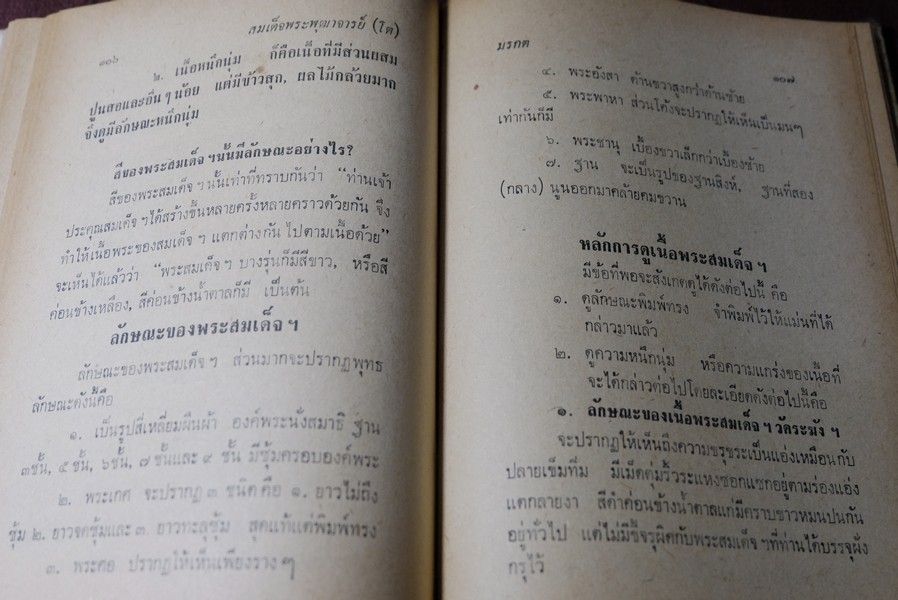 สมเด็จพระพุฒาจารย์ (โต)
๑๐๖
๒. เนื้อหนึกนุ่ม ก็คือเนื้อที่มีส่วนผสม
ปูนสอและอื่น ๆ น้อย แต่มีข้าวสุก, ผลไม้กล้วยมาก
จึงดูมีลักษณะหนึกนุ่ม
สีของพระสมเด็จ ฯ นั้นมีลักษณะอย่างไร?
สีของพระสมเด็จ ฯ นั้นเท่าที่ทราบกันว่า “ท่านเจ้า
ประคุณสมเด็จ ฯ ได้สร้างขึ้นหลายครั้งหลายคราวด้วยกัน จึง
ทำให้เนื้อพระของสมเด็จ ฯ แตกต่างกัน ไปตามเนื้อด้วย”
จะเห็นได้แล้วว่า “พระสมเด็จ ฯ บางรุ่นก็มีสีขาว, หรือสี
ค่อนข้างเหลือง, สีค่อนข้างน้ำตาลก็มี เป็นต้น
ลักษณะของพระสมเด็จ ฯ
ลักษณะของพระสมเด็จ ฯ ส่วนมากจะปรากฏพุทธ
ลักษณะดังนี้คือ
๑. เป็นรูปสี่เหลี่ยมผืนผ้า องค์พระนั่งสมาธิ ฐาน
๓ชั้น, ๕ ชั้น, ๖ชั้น, ๗ ชั้นและ ๙ ชั้น มีซุ้มครอบองค์พระ
๒. พระเกศ จะปรากฏ ๓ ชนิด คือ ๑. ยาวไม่ถึง
ซุ้ม ๒. ยาวจดซุ้มและ ๓. ยาวทะลุซุ้ม สุดแท้แต่พิมพ์ทรง
๓. พระศอ ปรากฏให้เห็นเพียงราง ๆ
มรกต
๑๐๗
๔. พระอังสา ด้านขวาสูงกว่าด้านซ้าย
๕. พระพาหา ส่วนโค้งจะปรากฏให้เห็นเป็นแมนๆ
เท่ากันก็มี
๖. พระชานุ เบื้องขวาเล็กกว่าเบื้องซ้าย
๗. ฐาน จะเป็นรูปของฐานสิงห์, ฐานที่สอง
(กลาง) นูนออกมาคล้ายคมขวาน
หลักการดูเนื้อพระสมเด็จ ฯ
มีข้อที่พอจะสังเกตดูได้ดังต่อไปนี้ คือ
๑. ดูลักษณะพิมพ์ทรง จำพิมพ์ไว้ให้แม่นที่ได้
กล่าวมาแล้ว
๒. ดูความหนึกนุ่ม หรือความแกร่งของเนื้อที่
จะได้กล่าวต่อไปโดยละเอียดดังต่อไปนี้คือ
๑. ลักษณะของเนื้อพระสมเด็จ ฯ วัดระฆัง ฯ
จะปรากฏให้เห็นถึงความขรุขระเป็นแอ่งเหมือนกับ
ปลายเข็มทิ่ม มีเม็ดตุ่มริ้วระแหงซอกแซกอยู่ตามร่องแอ่ง
แตกลายงา สีดำค่อนข้างน้ำตาลแก่มีคราบขาวหมนปนกัน
อยู่ทั่วไป แต่ไม่มีขี้จรุผิดกับพระสมเด็จ ฯ ที่ท่านได้บรรจุฝั่ง
กรุไว้